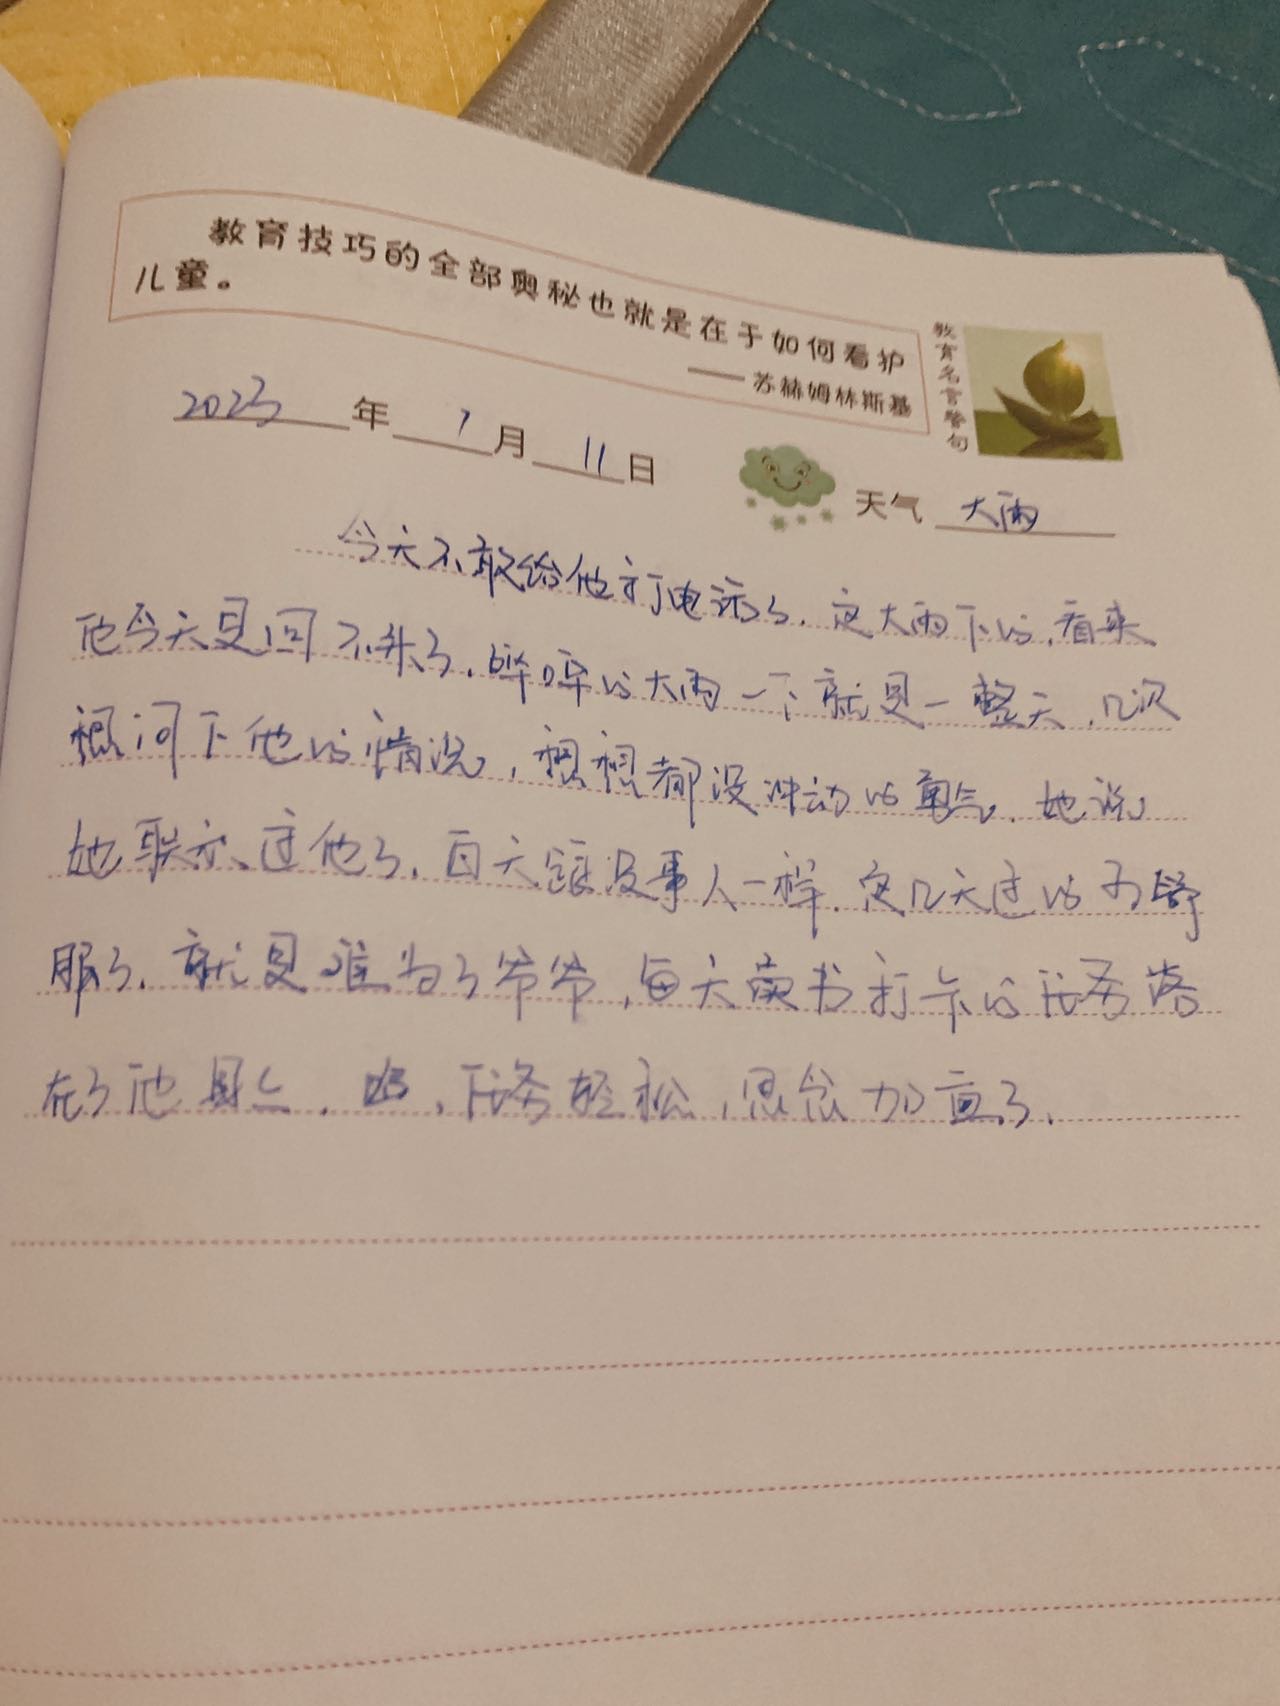 教育技巧的全部奥秘也就是在于如何看护
儿童。
——苏赫姆林斯基
教育名言警句
2023年7月11日
天气 大雨
今天不敢给他打电话了.这大雨下的,看来
他今天是回不来了.哗哗的大雨一下就是一整天,几次
想问下他的情况,想想都没冲动的勇气.她说
她联系过他了.白天跟没事人一样.这几天过的不舒
服了.就是难为了爷爷,每天读书打卡的任务落
在了他身上.哈,任务轻松,思念加重了.